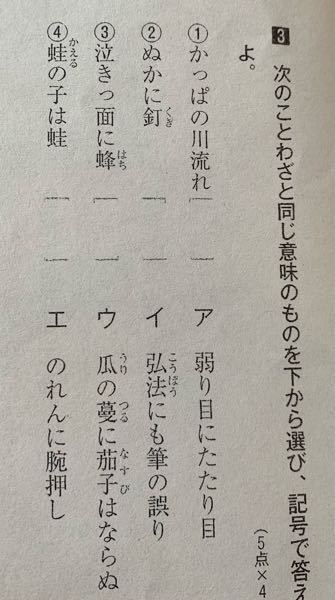 3 次のことわざと同じ意味のものを下から選び、記号で答え
よ。
(5点×4
①かっぱの川流れ [ ] ア 弱り目にたたり目
②ぬかに釘 [ ] イ 弘法にも筆の誤り
③泣きっ面に蜂 [ ] ウ 瓜の蔓に茄子はならぬ
④蛙の子は蛙 [ ] エ のれんに腕押し